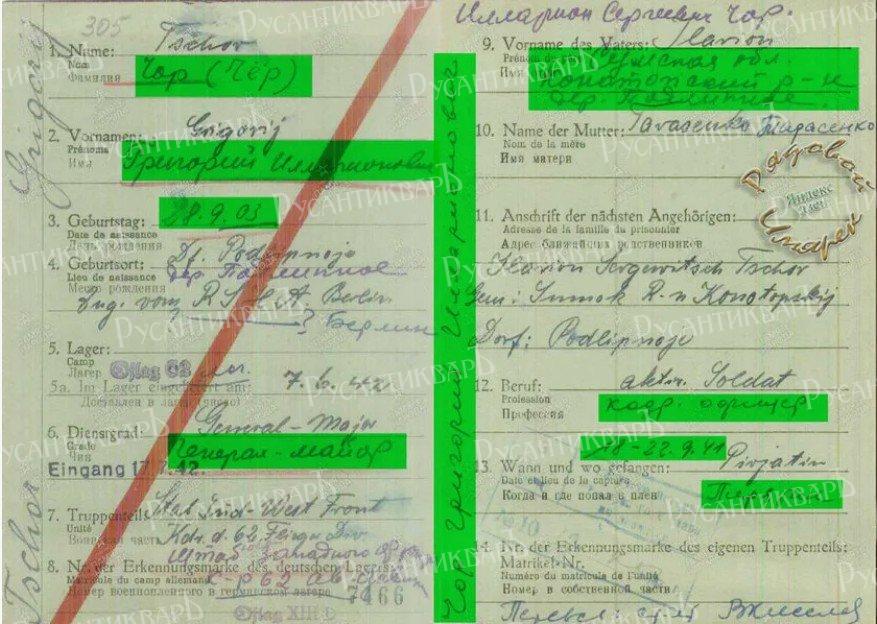 305
Grigorij
Tschor
1. Name: Tschor
Nom
Фамилия Чор (Чёр)
2. Vornamen: Grigorij
Prénoms
Имя Григорий Илларионович
3. Geburtstag: 28.9.03
Date de naissance
День рождения
4. Geburtsort: Df. Podlipnoje
Lieu de naissance дер. Подлипное
Место рождения
Zug. vom R.S.H.A. Berlin
Берлин
5. Lager:
Camp
Лагерь Oflag 62
5a. Im Lager eingeliefert am: 7.6.42
Доставлен в лагерь (число)
6. Dienstgrad: General-Major
Grade
Чин Генерал-майор
Eingang 17.7.42.
7. Truppenteil: Stab Süd-West Front
Unité Kdr. d. 62.
Воинская часть
Штаб Западного
8. Nr. der Erkennungsmarke des deutschen Lagers:
Matricule du camp allemand
Номер военнопленного в германском лагере 7466
Oflag XIII D
Чор Григорий Илларионович
Илларион Сергеевич Чор.
9. Vorname des Vaters: Ilarion
Prénom du père
Имя отца Сумская обл.
Конотопский р-н
дер. Подлипное
10. Name der Mutter: Tarasenko Тарасенко
Nom de la mère
Имя матери
Рядовой
Яндекс
Дзен
Имярек
11. Anschrift der nächsten Angehörigen:
Adresse de la famille du prisonnier
Адрес ближайших родственников
Ilarion Sergewitsch Tschor
Gem: Summsk R.n Konotopskij
Dorf: Podlipnoje
12. Beruf: aktiv. Soldat
Profession
Профессия кадр. офицер
18-22.9.41
13. Wann und wo gefangen: Pirjatin
Date et lieu de la capture
Когда и где попал в плен
14. Nr. der Erkennungsmarke des eigenen Truppenteils:
Matrikel-Nr.
Numéro du matricule de l'unité
Номер в собственной части
РусАнтикварЪ